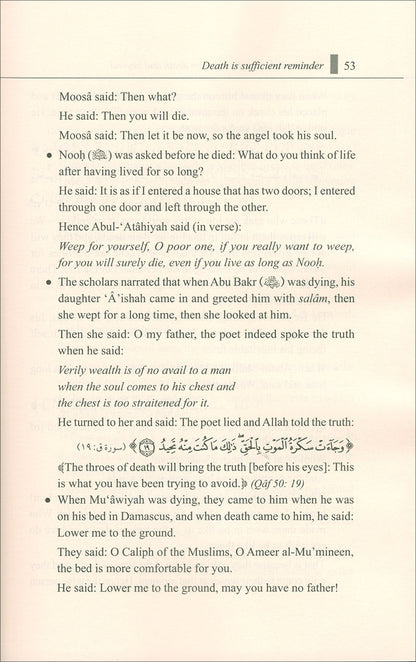 Death is sufficient reminder 53
Moosâ said: Then what?
He said: Then you will die.
Moosâ said: Then let it be now, so the angel took his soul.
• Nooḥ (ﷺ) was asked before he died: What do you think of life
after having lived for so long?
He said: It is as if I entered a house that has two doors; I entered
through one door and left through the other.
Hence Abul-‘Atâhiyah said (in verse):
Weep for yourself, O poor one, if you really want to weep,
for you will surely die, even if you live as long as Nooḥ.
• The scholars narrated that when Abu Bakr () was dying, his
daughter ‘Â’ishah came in and greeted him with salâm, then
she wept for a long time, then she looked at him.
Then she said: O my father, the poet indeed spoke the truth
when he said:
Verily wealth is of no avail to a man
when the soul comes to his chest and
the chest is too straitened for it.
He turned to her and said: The poet lied and Allah told the truth:
﴿ وَجَاءَتْ سَكْرَةُ الْمَوْتِ بِالْحَقِّ ۖ ذَٰلِكَ مَا كُنتَ مِنْهُ تَحِيدُ ١٩ ﴾ (سورة ق: ١٩)
﴾The throes of death will bring the truth [before his eyes]: This
is what you have been trying to avoid.﴿ (Qâf 50: 19)
• When Mu‘âwiyah was dying, they came to him when he was
on his bed in Damascus, and when death came to him, he said:
Lower me to the ground.
They said: O Caliph of the Muslims, O Ameer al-Mu’mineen,
the bed is more comfortable for you.
He said: Lower me to the ground, may you have no father!